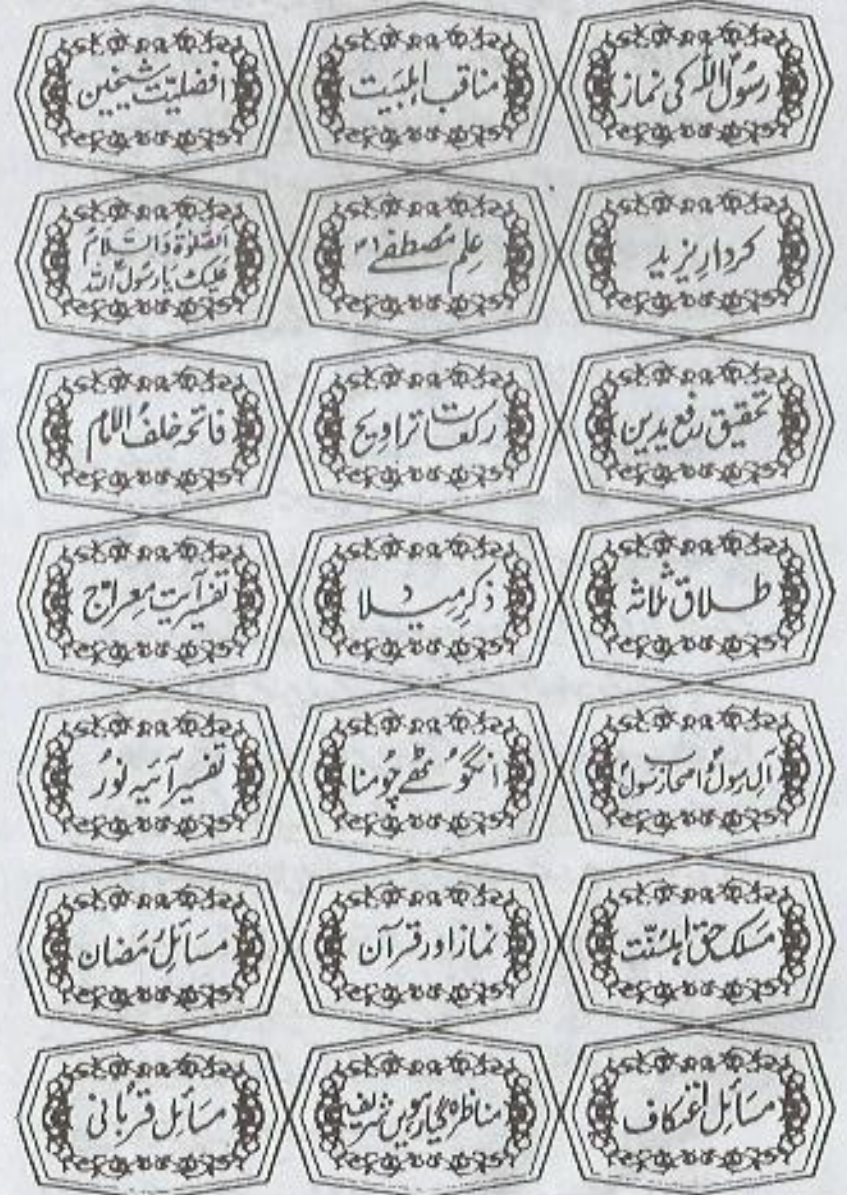 رسول اللہ کی نماز
مناقب اہلبیت
افضلیّت شیخین
کردارِ یزید
علم مصطفےٰ
الصّلوٰۃ والسّلام
علیک یا رسول اللہ
تحقیق رفع یدین
رکعات تراویح
فاتحہ خلف الامام
طلاق ثلاثہ
ذکرِ میلاد
تفسیر آیت معراج
آل رسول و اصحاب رسول
انگوٹھے چُومنا
تفسیر آئیہ نور
مسلک حق اہلسُنّت
نماز اور قرآن
مسائل رمضان
مسائل اعتکاف
مناظرہ گیارہویں شریف
مسائل قربانی